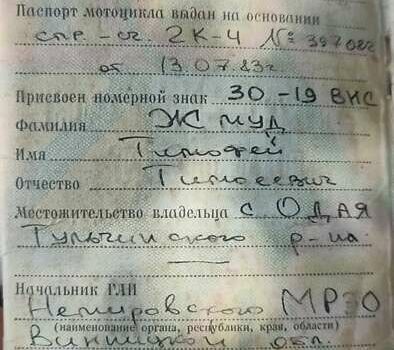 Паспорт мотоцикла выдан на основании
спр.-сч. 2К-Ч № 397082
от 13.07.83г
Присвоен номерной знак 30-19 ВНС
Фамилия Жмуд
Имя Тимофей
Отчество Тимосеевич
Местожительство владельца с. Одая
Тульчинского р-на
Начальник ГАИ
Немировского МРЭО
(наименование органа, республики, края, области)
Винницкой обл.